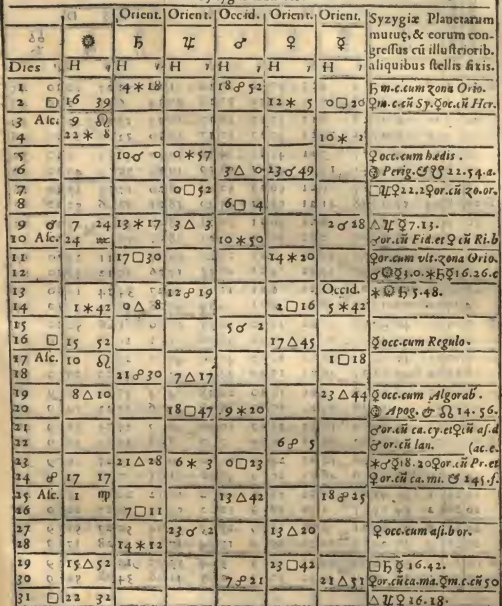 Orient. Orient. Occid. Orient. Orient. Syzygiæ Planetarum
☉ ♄ ♃ ♂ ♀ ☿ mutuę, & eorum con-
gressus cũ illustriorib.
Dies H H H H H H aliquibus stellis fixis.
1 4 ⚹ 18 18 ☍ 52 ♄ m.c.cum zona Orio.
2 □ 16 39 12 ⚹ 5 0 □ 20 ♀m.c.cũ Sy.☿oc.cũ Her.
3 Asc. 9 ♌
4 22 ⚹ 8 10 ⚹ 2
5 10 ☌ 0 0 ⚹ 57 ☿ occ.cum hædis.
6 3 △ 0 23 ☌ 49 Perig. 22.54.a.
7 0 □ 52 □♃♀22.2♀or.cũ zo.or.
8 6 □ 14
9 ☌ 7 24 13 ⚹ 17 3 △ 3 2 ☌ 28 △♃☿7.13.
10 Asc. 24 10 ⚹ 50 ♂or.cũ Fid.et ☿ cũ Ri.b
11 17 □ 30 14 ⚹ 20 ♀or.cum vlt.zona Orio.
12 ☌☉☿3.0.⚹♄☿16.26.e
13 12 ☍ 19 Occid. ⚹☉♄5.48.
14 1 ⚹ 42 0 △ 8 2 □ 16 5 ⚹ 42
15 5 ☌ 2
16 □ 15 52 17 △ 45 ☿ occ.cum Regulo.
17 Asc. 10 ♌ 1 □ 18
18 21 ☍ 30 7 △ 17
19 8 △ 10 23 △ 44 ☿ occ.cum Algorab.
20 18 □ 47 9 ⚹ 20 Apog. & ☊ 14.56.
21 ♂or.cũ ca.cy.et♀cũ as.d
22 6 ☍ 5 ♂ or.cũ lan. (ac.e.
23 21 △ 28 6 ⚹ 3 0 □ 23 ⚹♂☿18.20♀or.cũ Pr.et
24 ☍ 17 17 ♀or.cũ ca.mi. 245.f.
25 Asc. 1 ♍ 13 △ 42 18 ☍ 25
26 7 □ 11
27 23 ☌ 2 13 △ 20 ☿ occ.cum asi.b or.
28 14 ⚹ 12
29 15 △ 52 23 □ 42 □♄☿16.42.
30 7 ☍ 21 21 △ 51 ♀or.cũ ca.ma.☿m.c.cũ 50
31 □ 22 32 △♃♀16.18.